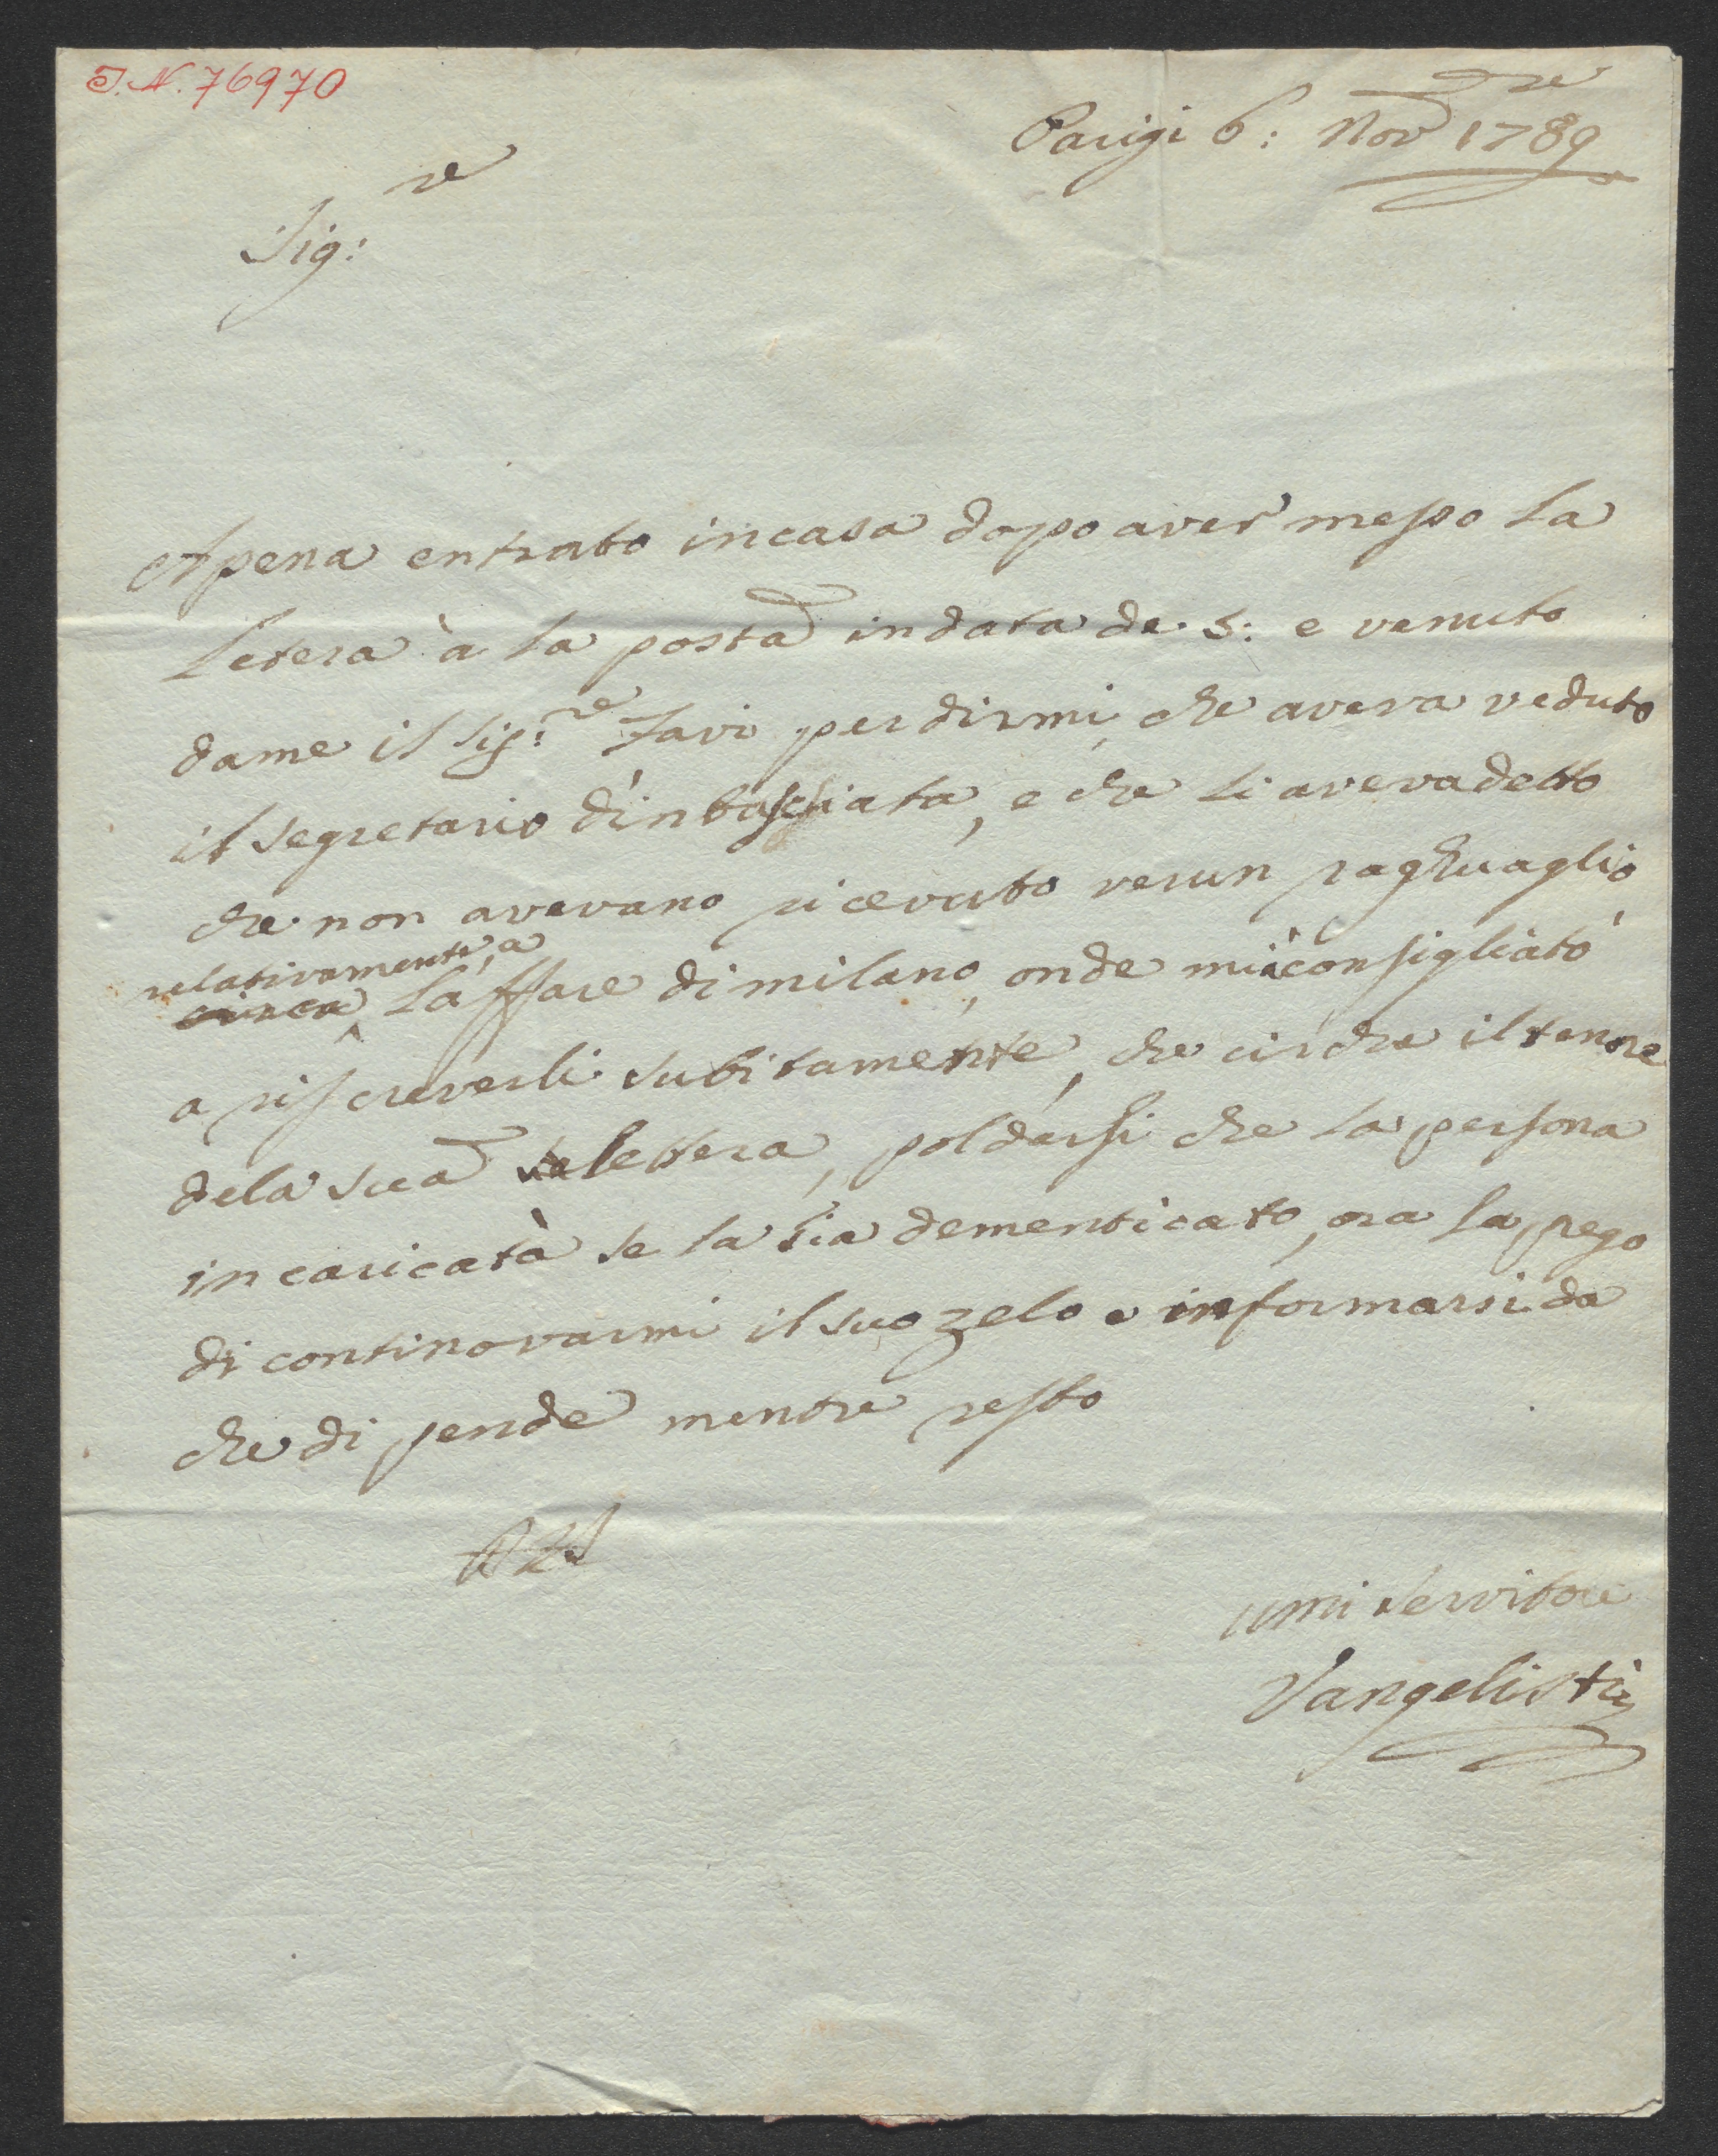 I.N. 76970
Parigi 6: Novre 1789
Sigre:
Apena entrato in casa dopo aver messo la
letera à la posta in data de 5: e venuto
dame il Sigre: Favi per dirmi, che aveva veduto
il segretario d'inbasciata, e che li aveva detto
che non avevano ricevuto verun raghuaglio,
relativamente, a
circa laffare di milano, onde mi à consigliato
a riscreverli subitamente, che circhra il tenore
dela sua lettera, pol darsi che la persona
incaricatà se la sia dementicato, ora la prego
di continovarmi il suo zelo e informarsi da
che di pende mentre resto
umi servitore
Vangelisti